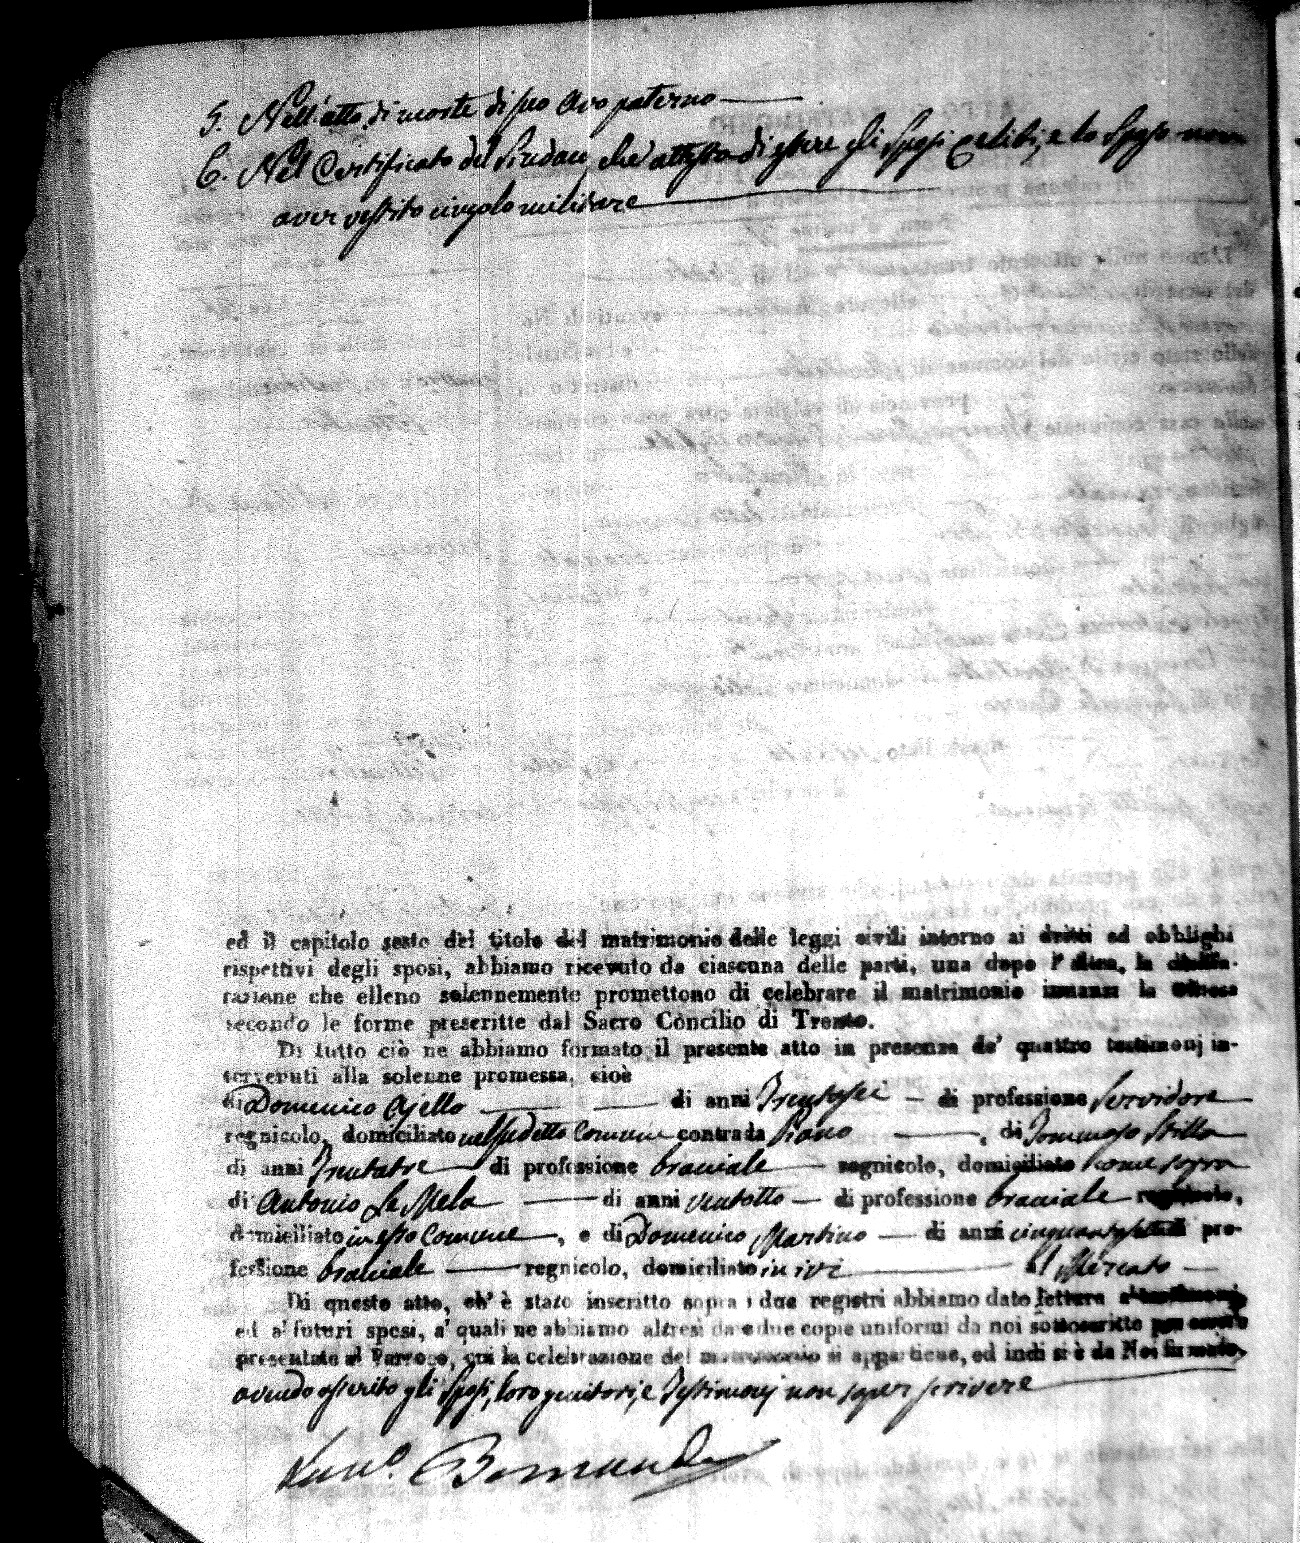 5. Nell'atto di morte di suo Avo paterno
6. Nel Certificato del Sindaco, che attesta di essere gli Sposi celibi, e lo Sposo non
aver vestito cingolo militare
ed il capitolo sesto del titolo del matrimonio delle leggi civili intorno ai dritti ed obblighi
rispettivi degli sposi, abbiamo ricevuto da ciascuna delle parti, una dopo l'altra, la dichia-
razione che elleno solennemente promettono di celebrare il matrimonio innanzi la Chiesa
secondo le forme prescritte dal Sacro Concilio di Trento.
Di tutto ciò ne abbiamo formato il presente atto in presenza de' quattro testimonj in-
tervenuti alla solenne promessa, cioè
di Domenico Ajello di anni Trentasei di professione Servidore
regnicolo, domiciliato nel sudetto Comune contrada Piano , di Tommaso Stilla
di anni Trentatre di professione bracciale regnicolo, domiciliato come sopra
di Antonio La Mela di anni ventotto di professione bracciale regnicolo,
domiciliato in esso Comune , e di Domenico Martino di anni di pro-
fessione bracciale regnicolo, domiciliato in ivi Mercato
Di questo atto, ch' è stato inscritto sopra i due registri abbiamo dato lettura a' testimonj
ed a' futuri sposi, a' quali ne abbiamo altresì date due copie uniformi da noi sottoscritte per essere
presentate al Parroco, cui la celebrazione del matrimonio si appartiene, ed indi si è da Noi firmato,
avendo asserito gli Sposi, loro genitori, e Testimonj non saper scrivere